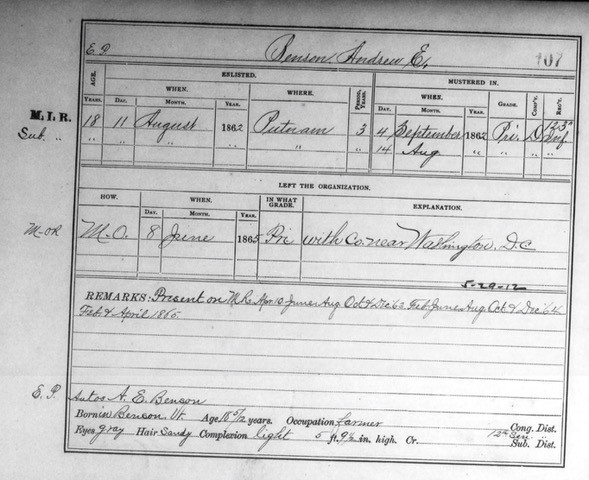 E.P. Benson, Andrew E. 107
AGE. ENLISTED. MUSTERED IN.
WHEN. WHERE. PERIOD, YEARS. WHEN. GRADE. CO'Y. REG'T.
YEARS. DAY. MONTH. YEAR. DAY. MONTH. YEAR.
M.I.R. 18 11 August 1862 Putnam 3 4 September 1862 Pri. D 123d Inf.
Sub. " " " " " " 14 Aug. " " " "
LEFT THE ORGANIZATION.
HOW. WHEN. IN WHAT GRADE. EXPLANATION.
DAY. MONTH. YEAR.
M-OR M.O. 8 June 1865 Pri with Co. near Washington, D.C
5-29-12
REMARKS: Present on M.R. Apr. 10, June, Aug. Oct & Dec '63, Feb, June, Aug. Oct & Dec '64,
Feb. & April 1865.
E.P. Autos A. E. Benson
Born in Benson, Vt. Age 18 5/12 years. Occupation farmer Cong. Dist.
Eyes gray Hair Sandy Complexion light 5 ft. 9½ in. high. Cr. Sub. Dist.